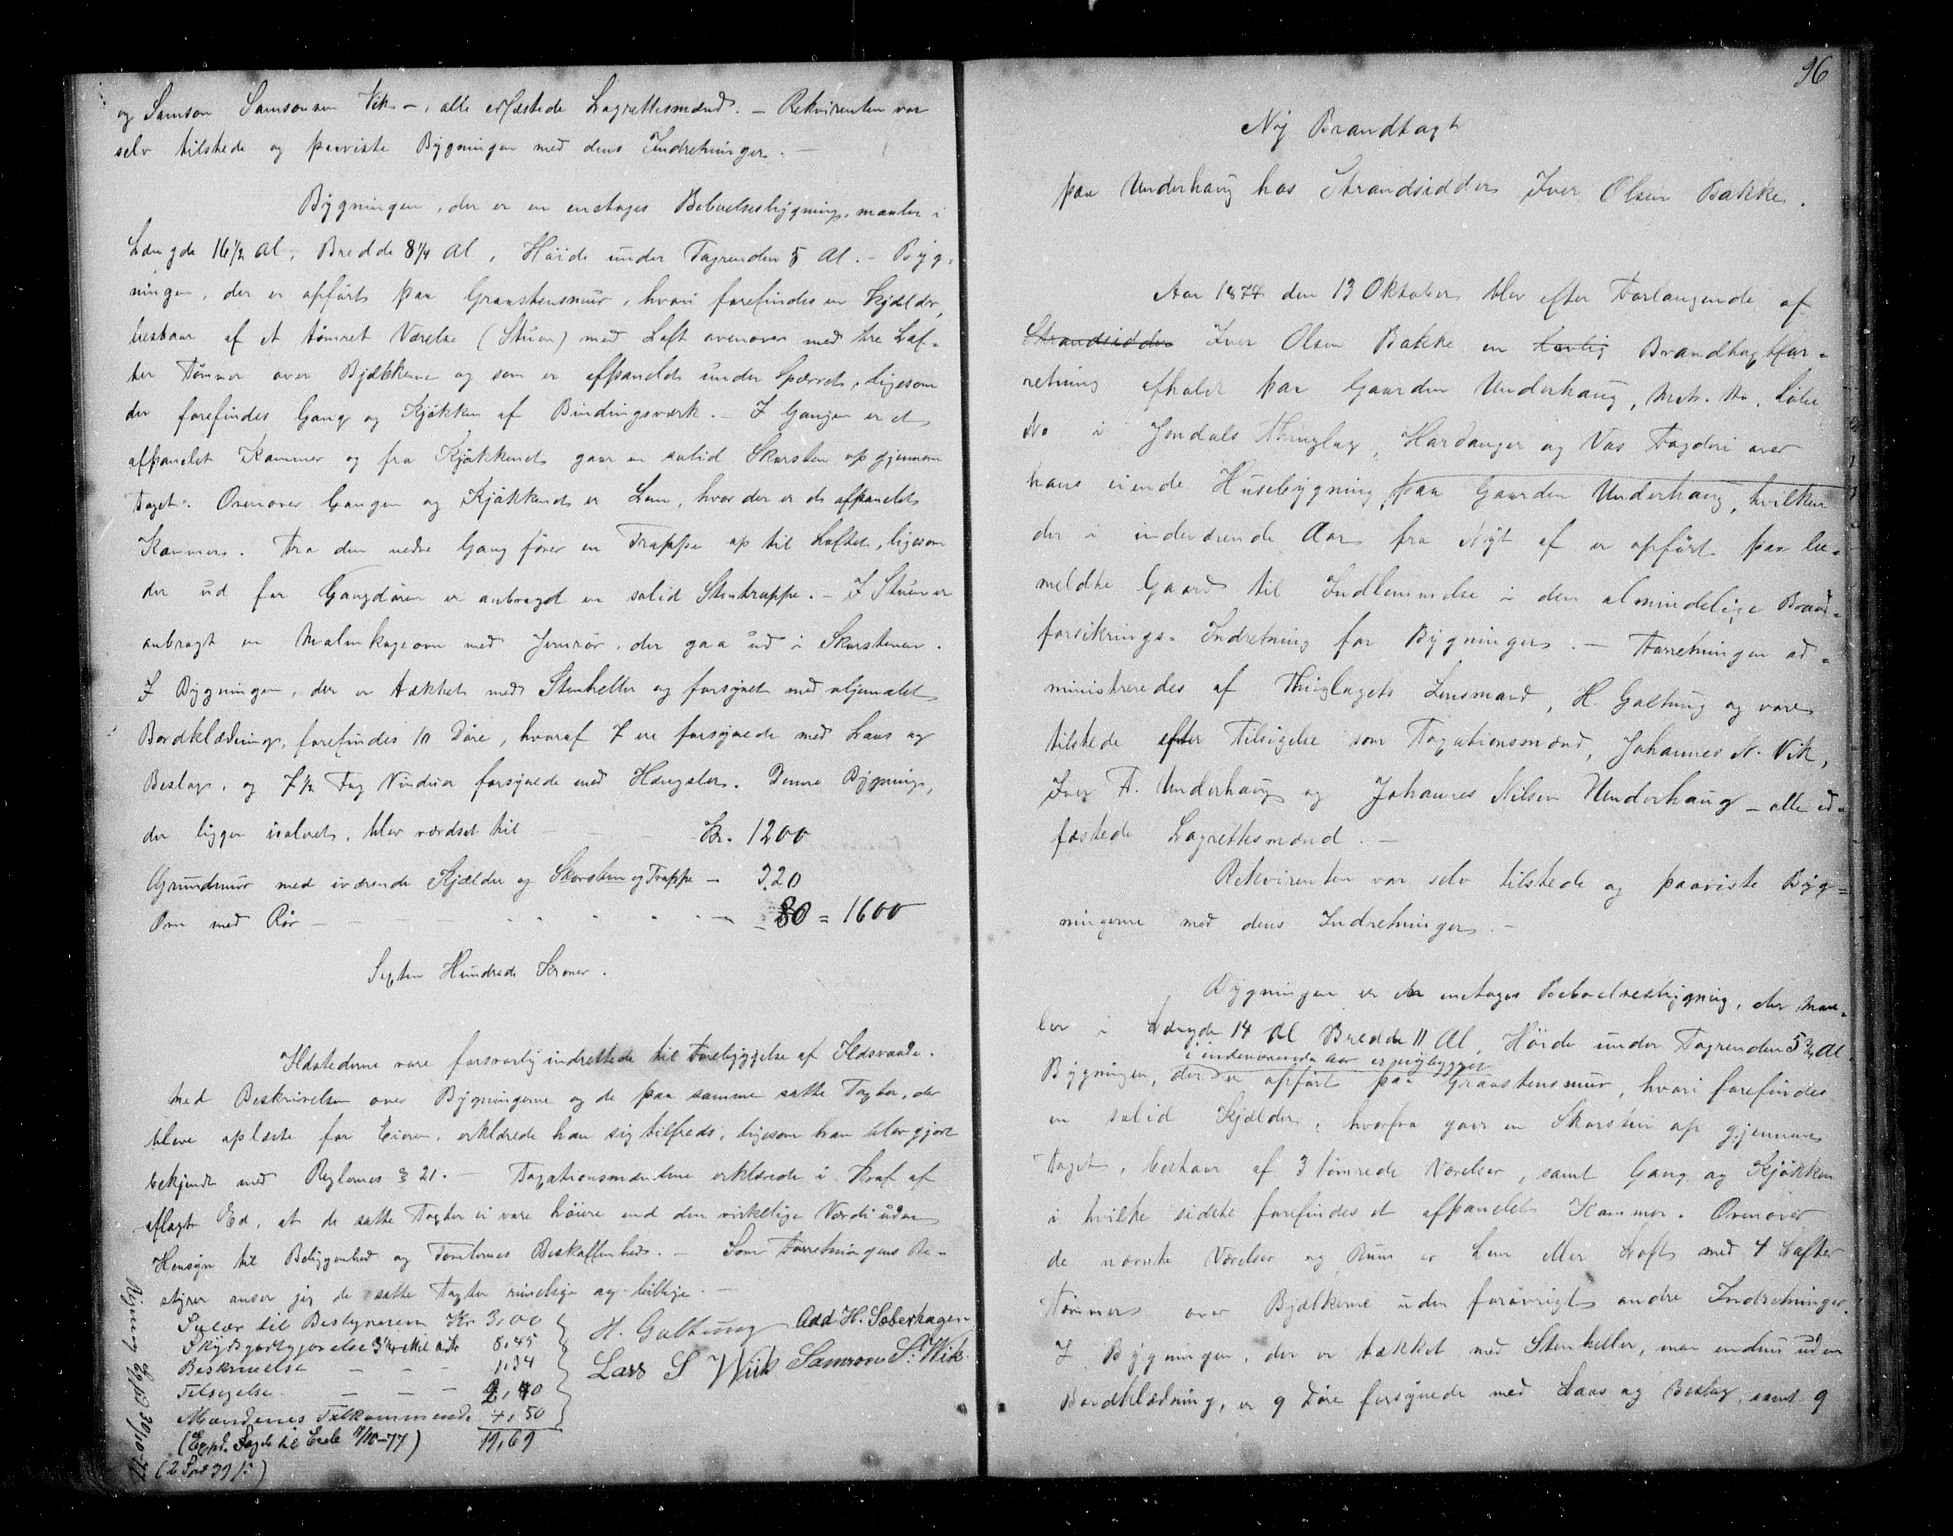 og Samson Samsonsen Vik –, alle edfæstede Lagrettesmænd. – Rekvirenten var
selv tilstede og paaviste Bygningen med dens Indretninger. –
Bygningen, der er en enetages Beboelsesbygning, maaler i
Længde 16½ Al, Bredde 8¼ Al, Høide under Tagrenden 5 Al. – Byg-
ningen, der er opført paa Graastensmur, hvori forefindes en Kjælder,
bestaar af et tømret Værelse (Stuen) med Loft ovenover med tre Laf-
ter Tømmer over Bjælkerne og som er afpanelet under Sperret, ligesom
der forefindes Gang og Kjøkken af Bindingsværk. – I Gangen er et
afpanelet Kammer og fra Kjøkkenet gaar en solid Skorsten op gjennem
Taget. Ovenover Gangen og Kjøkkenet er Lem, hvor der er et afpanelet
Kammer. Fra den nedre Gang fører en Trappe op til Loftet, ligesom
der ud for Gangdøren er anbragt en solid Stentrappe. – I Stuen er
anbragt en Malmkageovn med Jernrør, der gaa ud i Skorstenen.
I Bygningen, der er tækket med Stenheller og forsynet med oljemalet
Bordklædning, forefindes 10 Døre, hvoraf 7 ere forsynede med Laas og
Beslag, og 7½ Fag Vinduer forsynede med Hængsler. Denne Bygning,
der ligger isoleret, blev værdsat til – – – kr. 1200
Grundmur med iværende Kjælder og Skorsten og Trappe – 320
Ovn med Rør – – – – 80 = 1600
Sexten Hundrede Kroner.
Ildstederne vare forsvarlig indrettede til Forebyggelse af Ildsvaade.
Med Beskrivelsen over Bygningerne og de paa samme satte Taxter, der
bleve oplæste for Eieren, erklærede han sig tilfreds, ligesom han blev gjort
bekjendt med Reglernes § 21. – Taxationsmændene erklærede i Kraf af
aflagt Ed, at de satte Taxter ei vare høiere end den virkelige Værdi uden
Hensyn til Beliggenhed og Tomternes Beskaffenhed. – Som Forretningens Be-
styrer anser jeg de satte Taxter rimelige og billige. –
Salær til Bestyreren Kr 3,00
Skydsgodtgjørelse 3¼ Mil 8,45
Beskrivelse – 1,34
Tilsigelse – – – 2,40
Mændenes Tilkommende 4,50
19,69
(2 Spd 39 ß)
H. Galtung Odd H. Selverhagen
Lars S Wiik Samson S. Wik
96
Ny Brandtagt
paa Underhaug hos Strandsidder Iver Olsen Bakke.
Aar 1877 den 13 Oktober blev efter Forlangende af
Strandsidder Iver Olsen Bakke en lovlig Brandtagtfor-
retning afholdt paa Gaarden Underhaug, Matr. No , Løbe
No i Jondals Thinglag, Hardanger og Vos Fogderi over
hans eiende Husebygning paa Gaarden Underhaug, hvilken
der i indeværende Aar fra Nyt af er opført paa be-
meldte Gaard til Indlemmelse i den almindelige Brand-
forsikrings-Indretning for Bygninger. – Forretningen ad-
ministreredes af Thinglagets Lensmand, H. Galtung og vare
tilstede efter Tilsigelse som Taxationsmænd, Johannes N. Vik,
Iver T. Underhaug og Johannes Nilsen Underhaug – alle ed-
fæstede Lagrettesmænd. –
Rekvirenten var selv tilstede og paaviste Byg-
ningerne med dens Indretninger. –
Bygningen er en enetages Beboelsesbygning, der maa-
ler i Længde 14 Al Bredde 11 Al, Høide under Tagrenden 5¾ Al.
i indeværende Aar er nybygget
Bygningen, der er opført paa Graastensmur, hvori forefindes
en solid Kjælder, hvorfra gaar en Skorsten op gjennem
Taget, bestaar af 3 tømrede Værelser, samt Gang og Kjøkken
i hvilke sidste forefindes et afpanelet Kammer. Ovenover
de nævnte Værelser og Rum er Lem eller Loft med 4 Lafter
Tømmer over Bjælkerne uden forøvrigt andre Indretninger.
I Bygningen, der er tækket med Stenheller, men endnu uden
Bordklædning, er 9 Døre forsynede med Laas og Beslag, samt 9